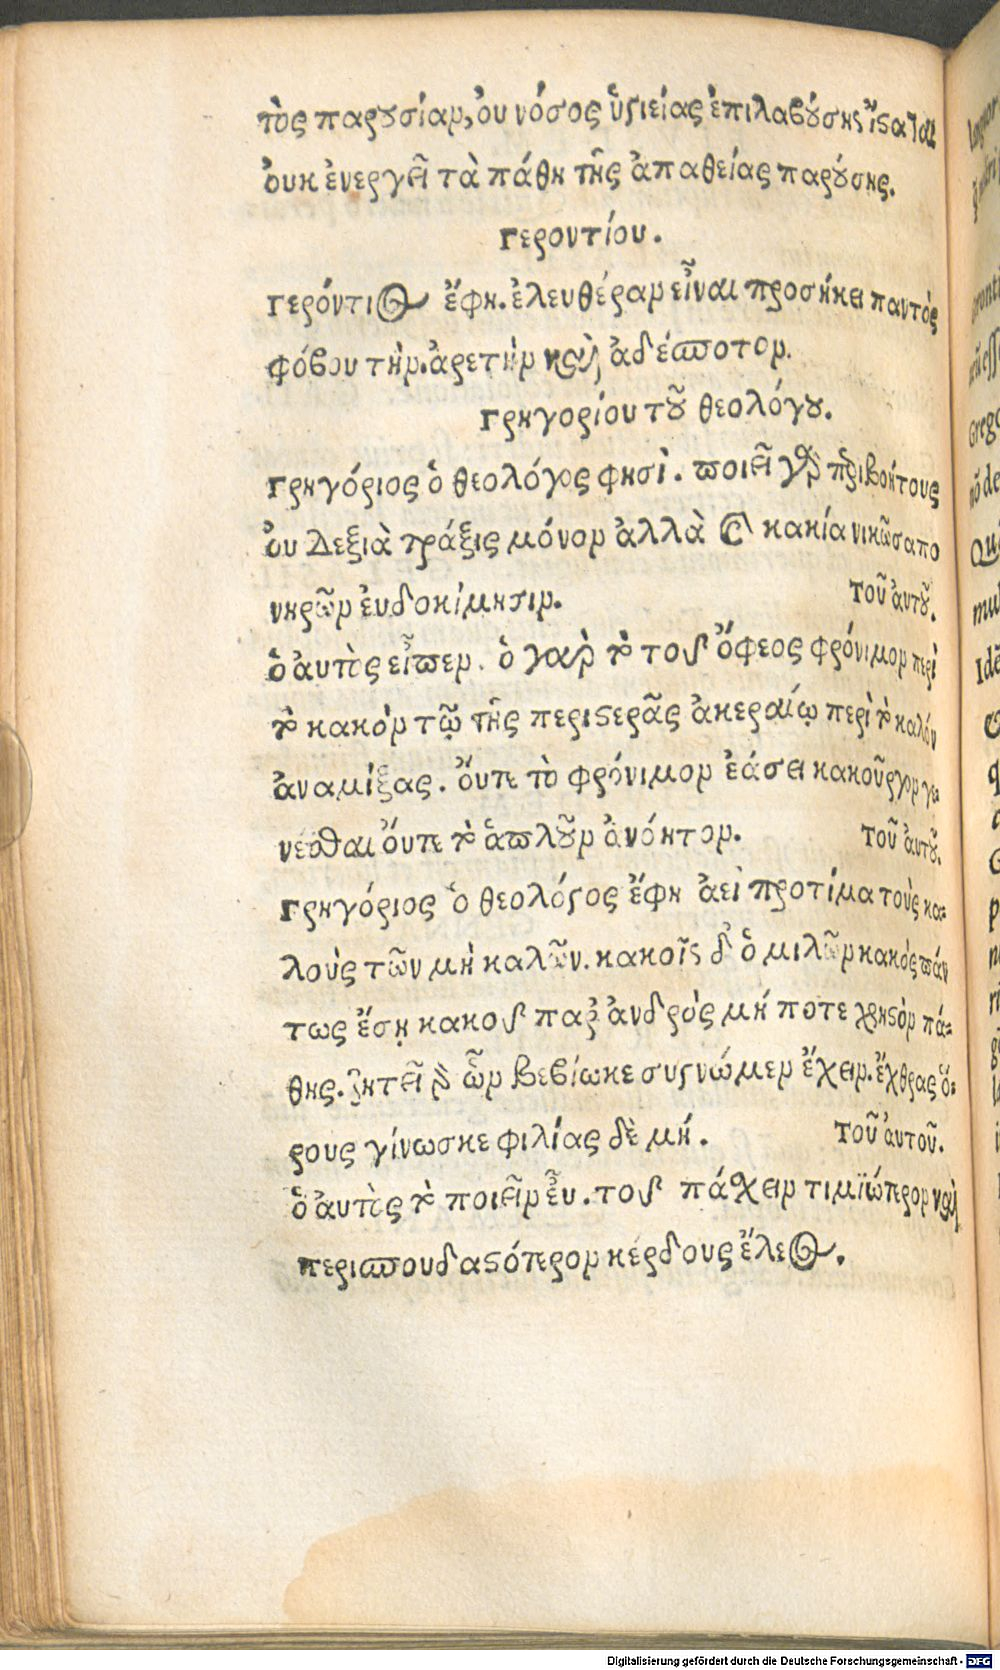 τὸς παρουσίαν, ὀυ νόσος ὑγιείας ἐπιλαβούσης ἵσαται
ὀυκ ἐνεργεῖ τὰ πάθη τῆς ἀπαθείας παρούσης.
Γεροντίου.
Γερόντιος ἔφη. ἐλευθέραν εἶναι προσήκει παντὸς
φόβου τὴν. ἀρετὴν καὶ ἀδέσποτον.
Γρηγορίου τοῦ θεολόγου.
Γρηγόριος ὁ θεολόγος φησὶ. ποιεῖ γὰρ περιβοήτους
ὀυ Δεξιὰ πράξις μόνον ἀλλὰ καὶ κακία νικῶσα πο
νηρῶν ἐυδοκίμησιν. Τοῦ ἀυτοῦ.
ὁ ἀυτὸς εἶπεν. ὁ γαρ τὸ τοῦ ὄφεος φρόνιμον περὶ
τὸ κακὸν τῷ τῆς περιστερᾶς ἀκεραίῳ περὶ τὸ καλόν
ἀναμίξας. ὄυτε τὸ φρόνιμον ἐάσει κακοῦργον γε⸗
νέσθαι ὄυτε τὸ ἁπλοῦν ἀνόητον. Τοῦ ἀυτοῦ.
Γρηγόριος ὁ θεολόγος ἔφη ἀεὶ προτίμα τοὺς κα⸗
λοὺς τῶν μὴ καλῶν. κακοῖς δ' ὁμιλῶν κακὸς πάν
τως ἔσῃ κακοῦ παρ' ἀνδρὸς μή ποτε χρηστὸν πά⸗
θης. ζητεῖ ὧν βεβίωκε συγνώμεν ἔχειν. ἔχθρας ὅ⸗
ρους γίνωσκε φιλίας δὲ μή. Τοῦ ἀυτοῦ.
ὁ ἀυτὸς τὸ ποιεῖν ἐυ. τοῦ πάσχειν τιμϊώτερον καὶ
περισπουδαστότερον κέρδους ἔλεος.
Digitalisierung gefördert durch die Deutsche Forschungsgemeinschaft - DFG